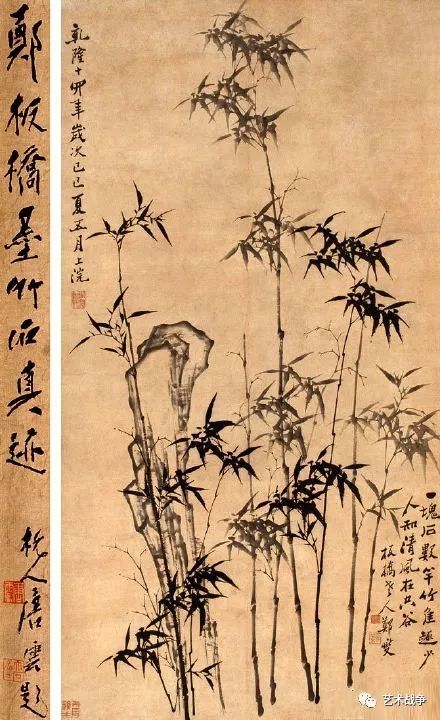 鄭板橋墨竹石真迹
杭人唐雲題
乾隆十四年歲次己巳夏五月上浣
一塊石數竿竹佳趣少
人知清風在空谷
板橋老人鄭燮
艺术战争